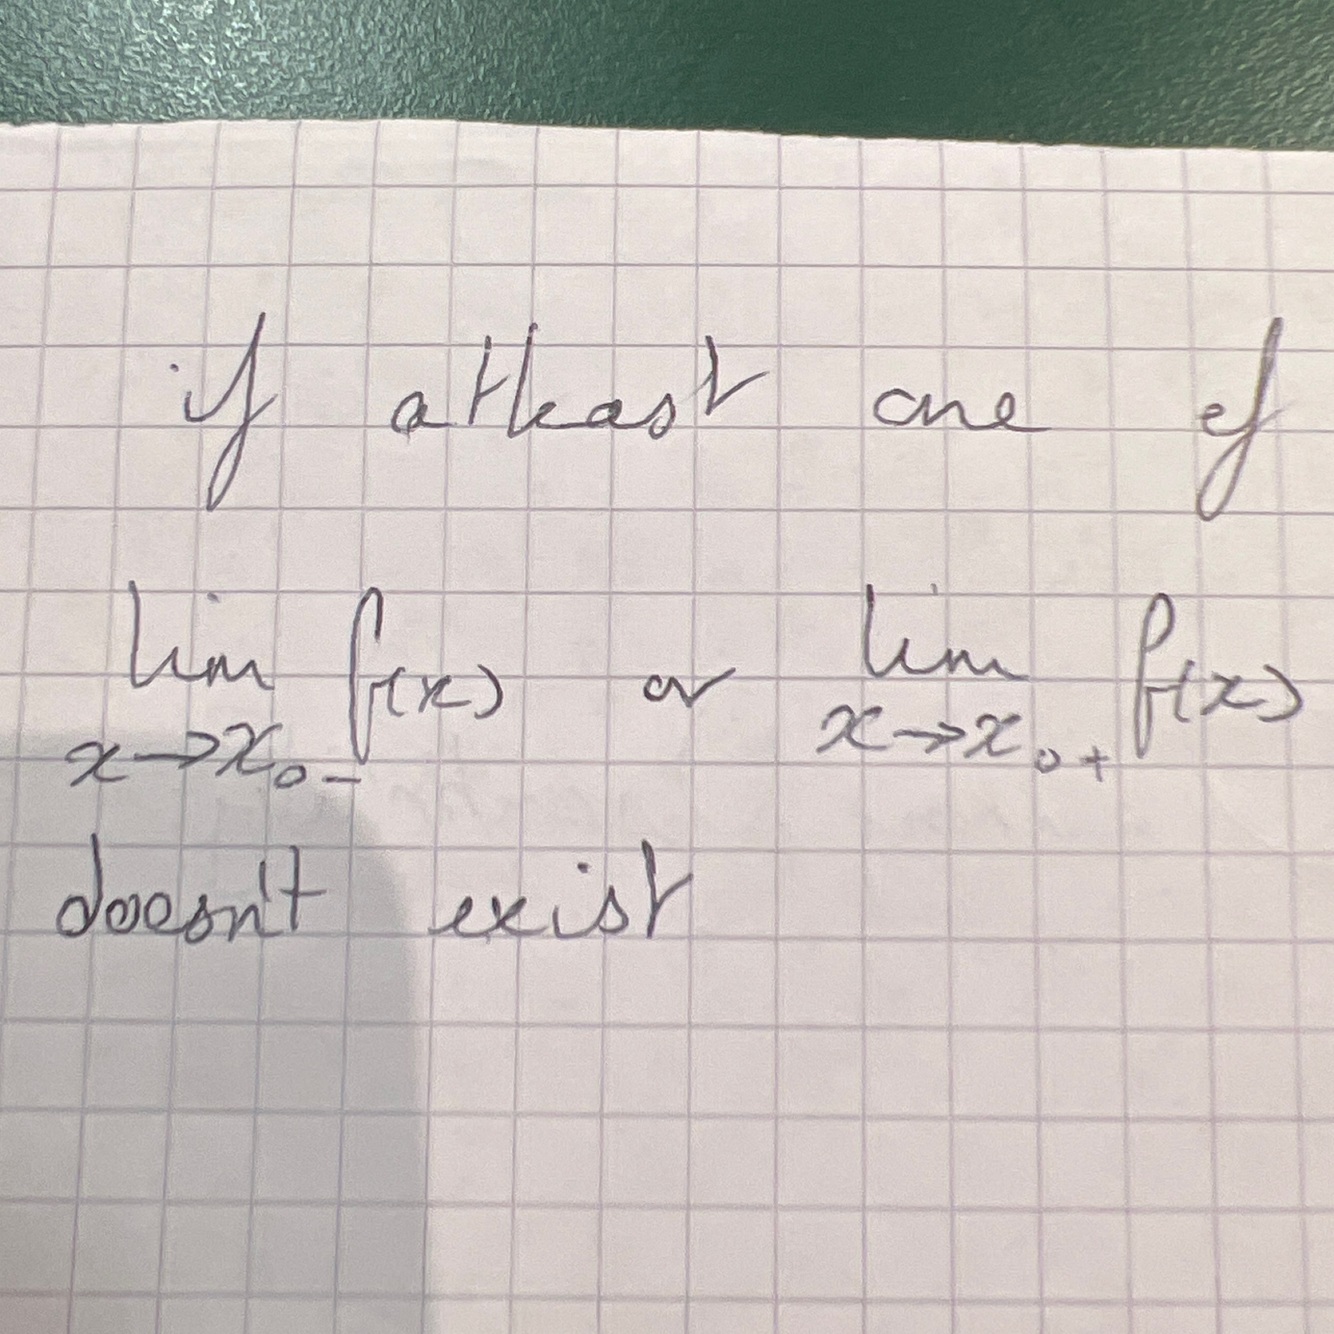 if atleast one of
lim f(x) or lim f(x)
x→x₀₋ x→x₀₊
doesn't exist